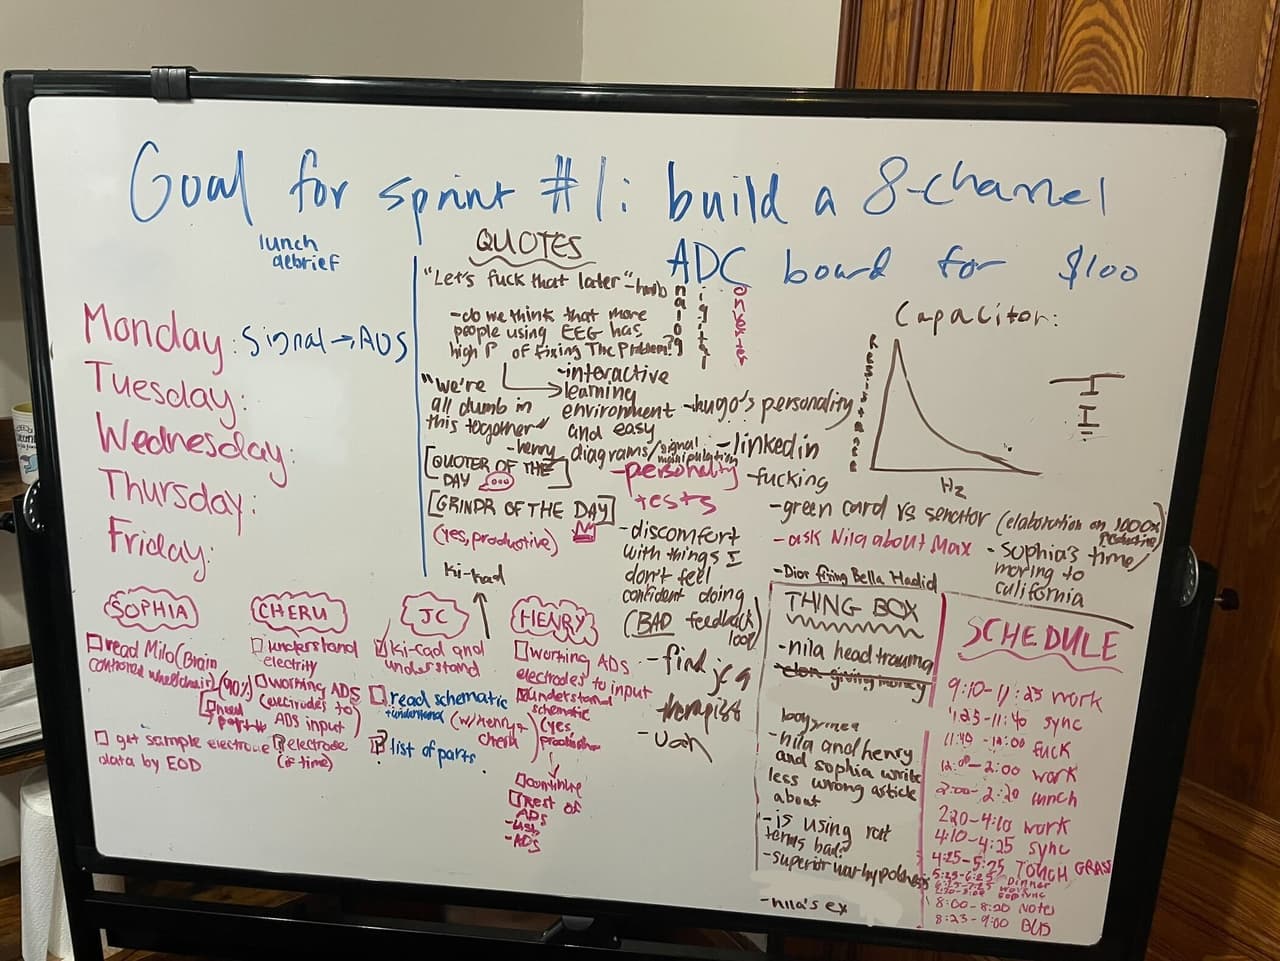 Goal for sprint #1: build a 8-channel
ADC board for $100
lunch
debrief
Monday: Signal → ADS
Tuesday:
Wednesday:
Thursday:
Friday:
QUOTES
"Let's fuck that later"
-do we think that more
people using EEG has
high P of fixing The Problem?
-interactive
learning
environment
and easy
diagrams/signal
manipulation
"we're
all dumb in
this together"
-henry
[QUOTER OF THE
DAY]
[GRINDR OF THE DAY]
(yes, productive)
analog
digital
onverter
-hugo's personality
-linkedin
-personality
tests
-fucking
-discomfort
with things I
don't feel
confident doing
(BAD feedback
loop)
-find jc a
therapist
-green card vs senator (elaboration on 1000x
-ask Nila about Max
-Sophia's time
moving to
california
-Dior firing Bella Hadid
Capacitor:
Resistance
Hz
SOPHIA
read Milo (Brain
controlled wheelchair) (90%)
need
parts
get sample electrode
data by EOD
CHERU
understand
electrity
working ADS
(electrodes to
ADS input)
? electrode
(if time)
Ki-kad
JC
ki-cad and
understand
read schematic
+understand (w/Henry+
cheru)
? list of parts
HENRY
working ADS
electrodes to input
understand
schematic
(yes,
productive)
continue
rest of
ADS
-ADS
THING BOX
-nila head trauma
-nila and henry
and sophia write
less wrong article
about
-is using rat
terms bad?
-nila's ex
SCHEDULE
9:10-11:25 work
11:25-11:40 sync
11:40-12:00 fuck
12:00-2:00 work
2:00-2:20 lunch
2:20-4:10 work
4:10-4:25 sync
4:25-5:25 TOUCH GRASS
5:25-6:25 Dinner
8:00-8:20 Notes
8:23-9:00 BUS